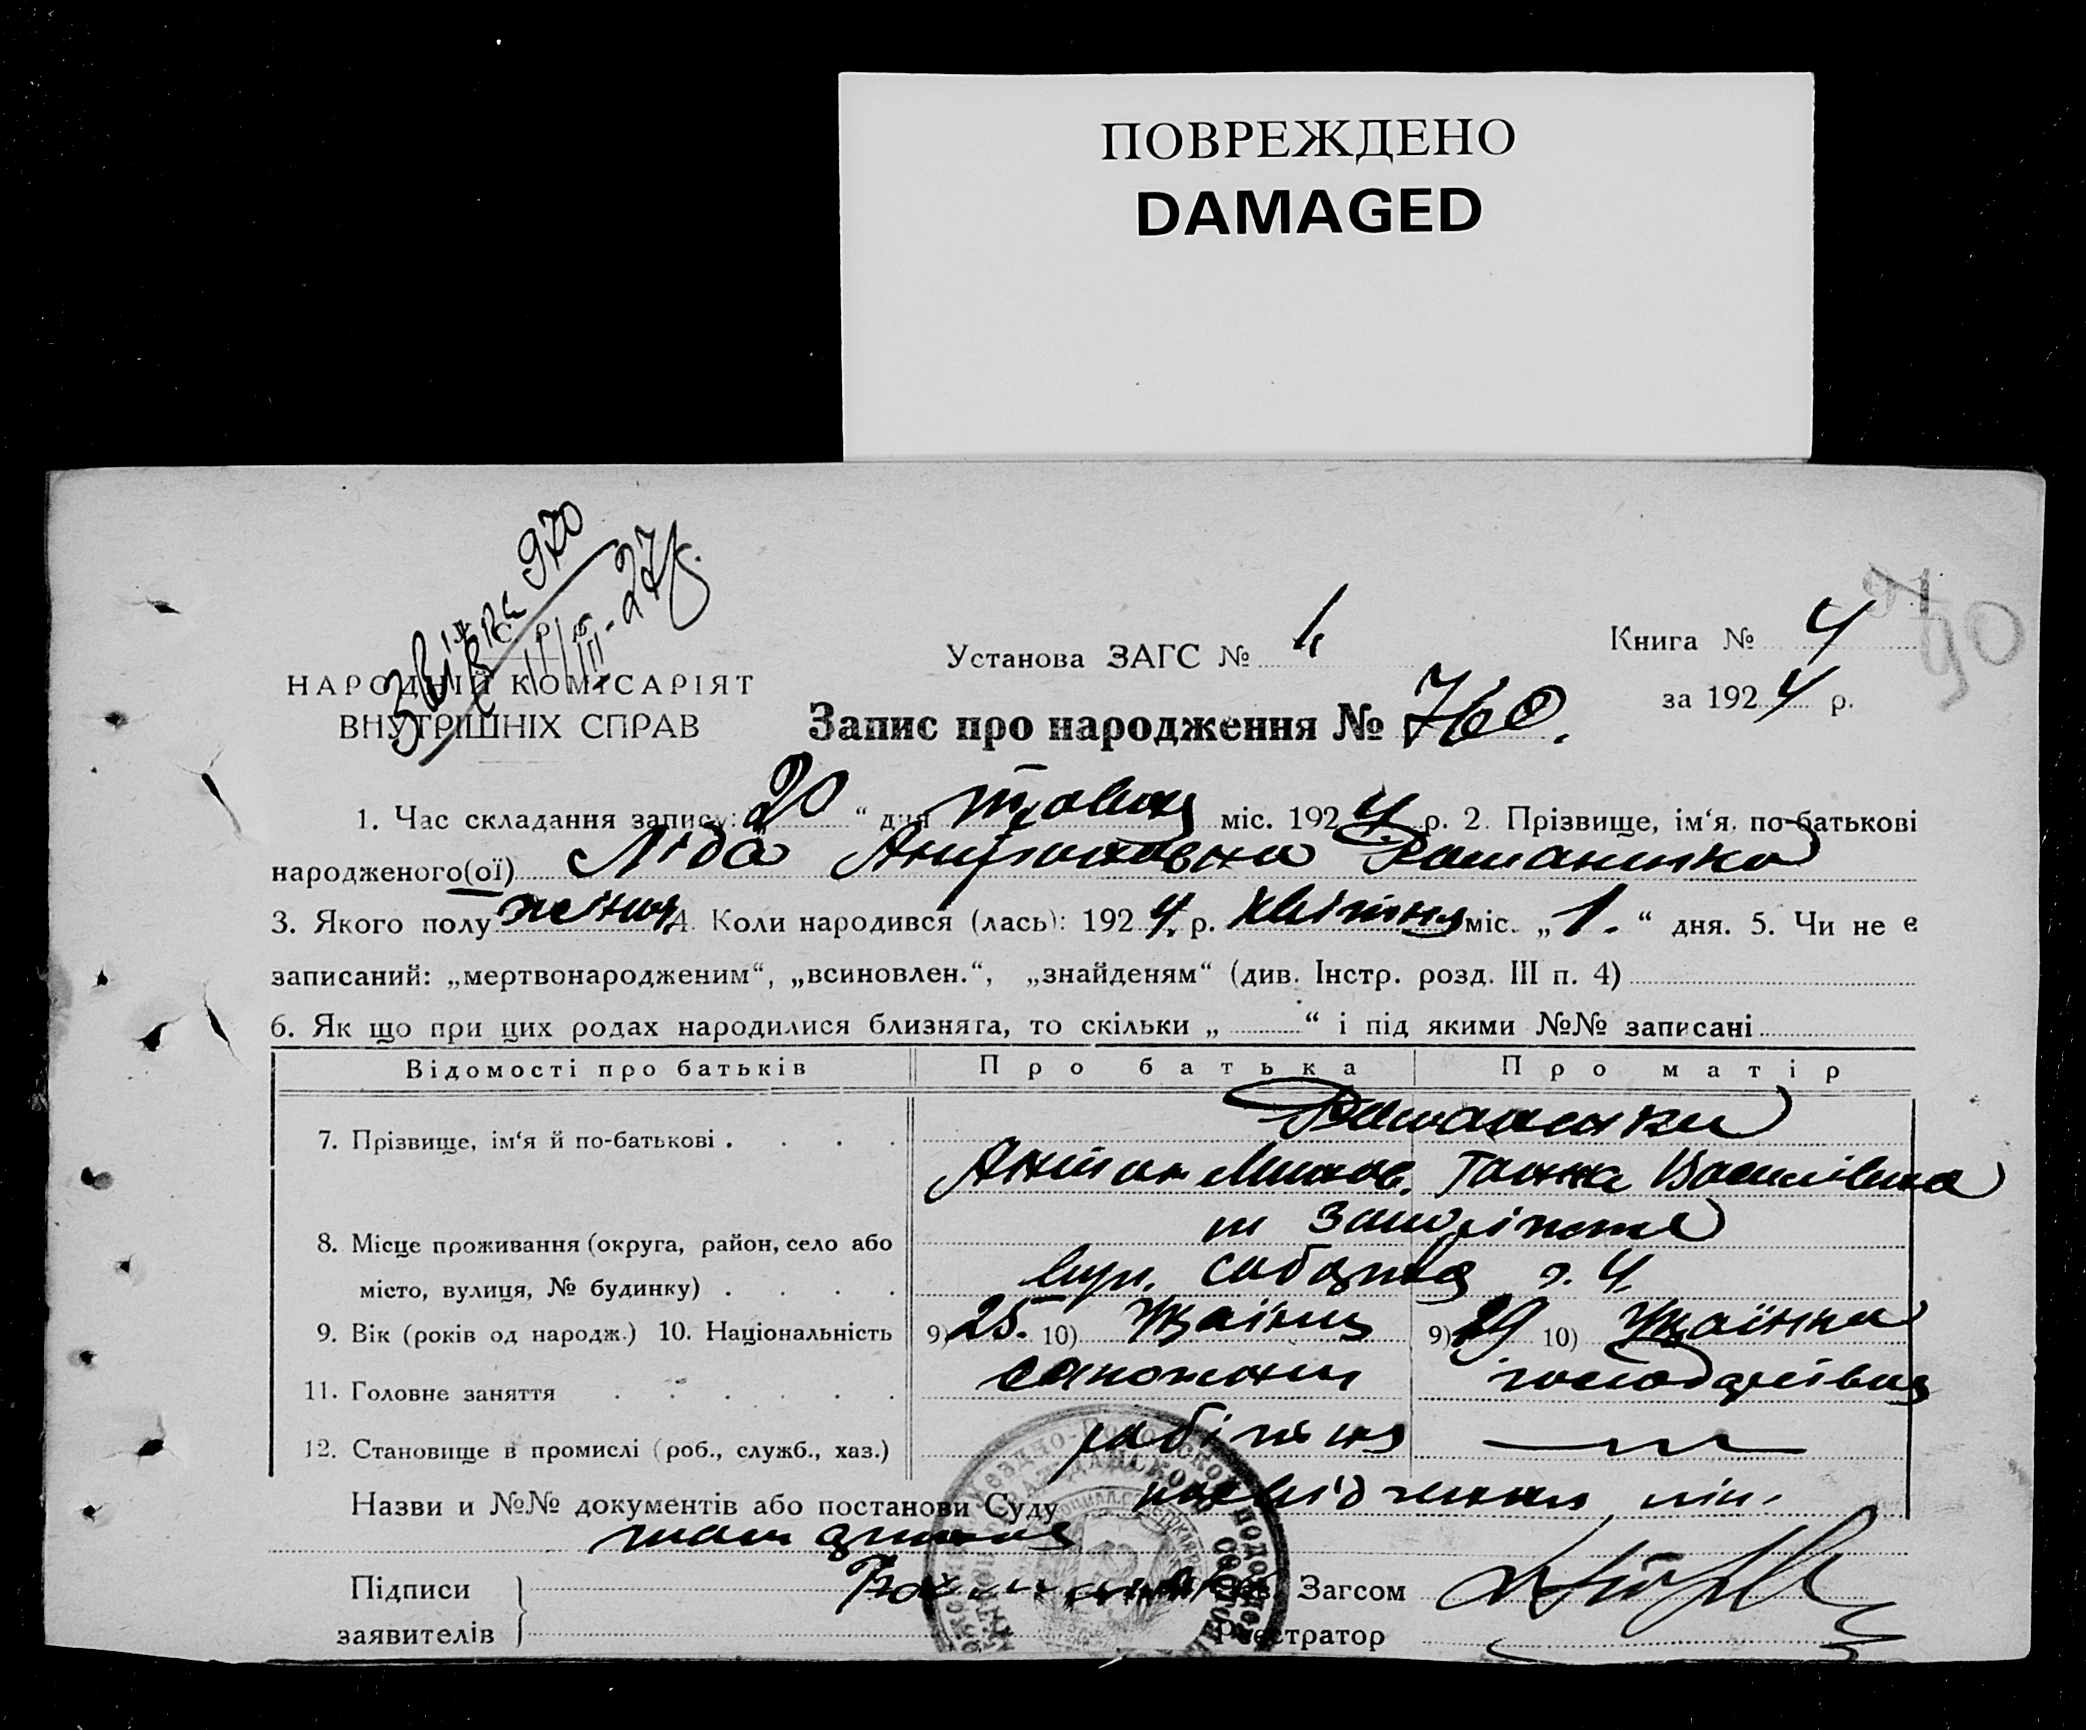 ПОВРЕЖДЕНО
DAMAGED
970
III-27
НАРОДНІЙ КОМІСАРІЯТ
ВНУТРІШНІХ СПРАВ
Установа ЗАГС №
Книга № 4
за 1924 р.
90
Запис про народження № 760.
1. Час складання запису: „20“ дня травня міс. 1924 р. 2. Прізвище, ім‘я, по-батькові
народженого(ої) Ліда Антоновна Романенко
3. Якого полу жіноч. 4. Коли народився (лась): 1924 р. квітня міс. „1.“ дня. 5. Чи не є
записаний: „мертвонародженим“, „всиновлен.“, „знайденям“ (див. Інстр. розд. III п. 4)
6. Як що при цих родах народилися близнята, то скільки „ “ і під якими №№ записані
Відомості про батьків Про батька Про матір
7. Прізвище, ім‘я й по-батькові . . . . Романенки
Антон Ганна Василівна
8. Місце проживання (округа, район, село або м Запоріжжя
місто, вулиця, № будинку) . . . . вул. 4
9. Вік (років од народж.) 10. Національність 9) 25. 10) Украінец 9) 29 10) Украінка
11. Головне заняття . . . . . .
12. Становище в промислі (роб., служб., хаз.) робітник
Назви и №№ документів або постанови Суду посвідчення
Підписи Романенко Зав. Загсом
заявителів Реєстратор